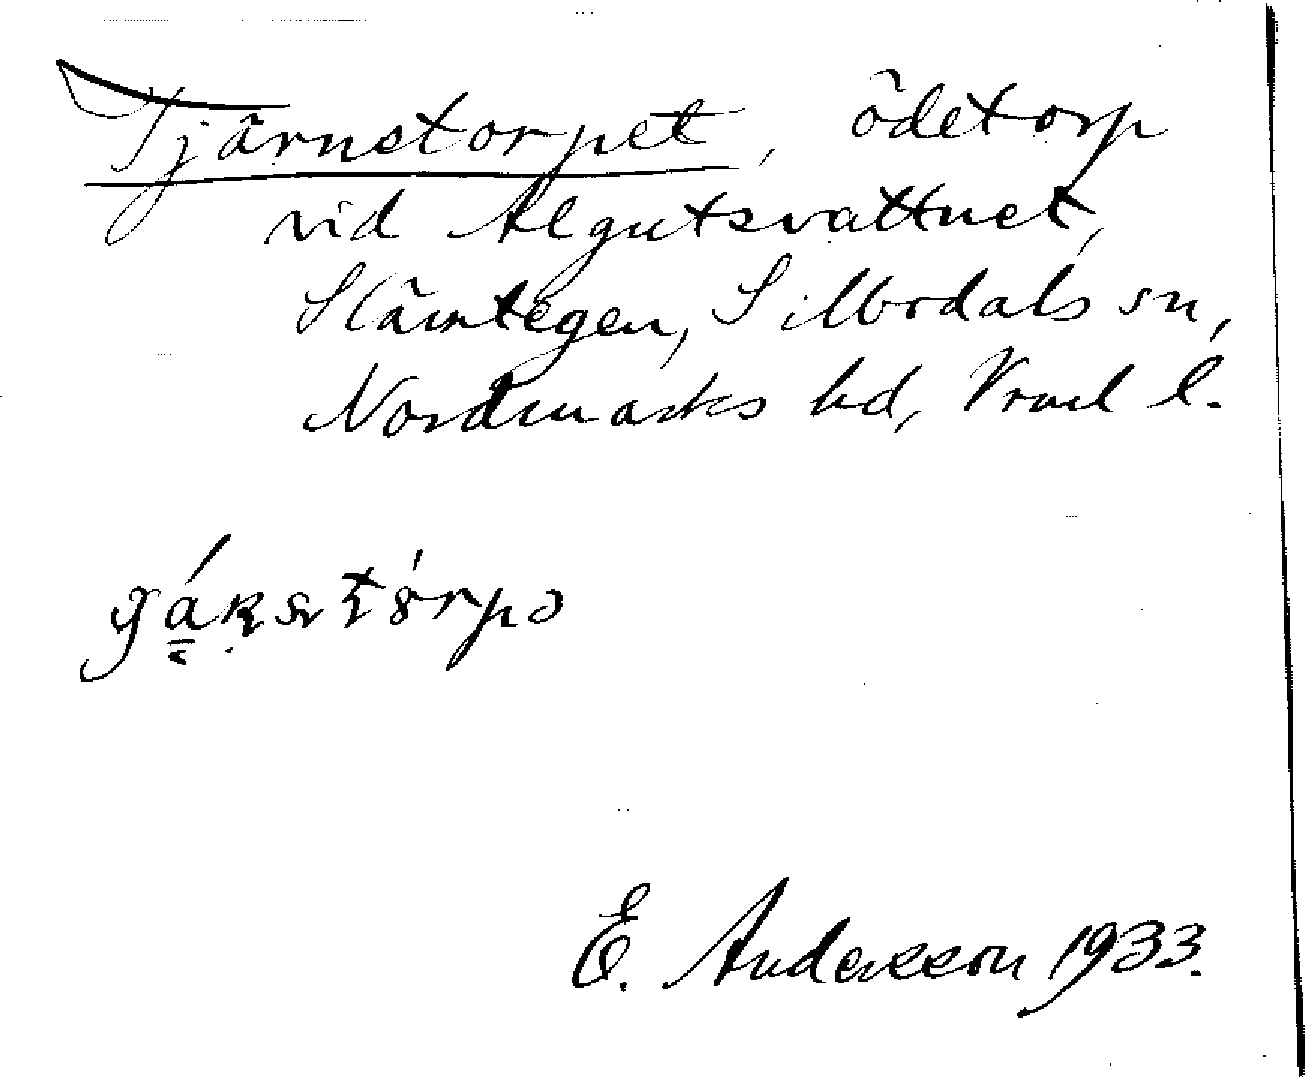 Tjärnstorpet, ödetorp
vid Algutsvattnet,
Slämtegen, Sillbodals sn,
Nordmarks hd, Vrml l.
E. Andersson 1933.